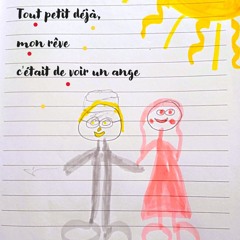 Tout petit déjà,
mon rêve
c'était de voir un ange